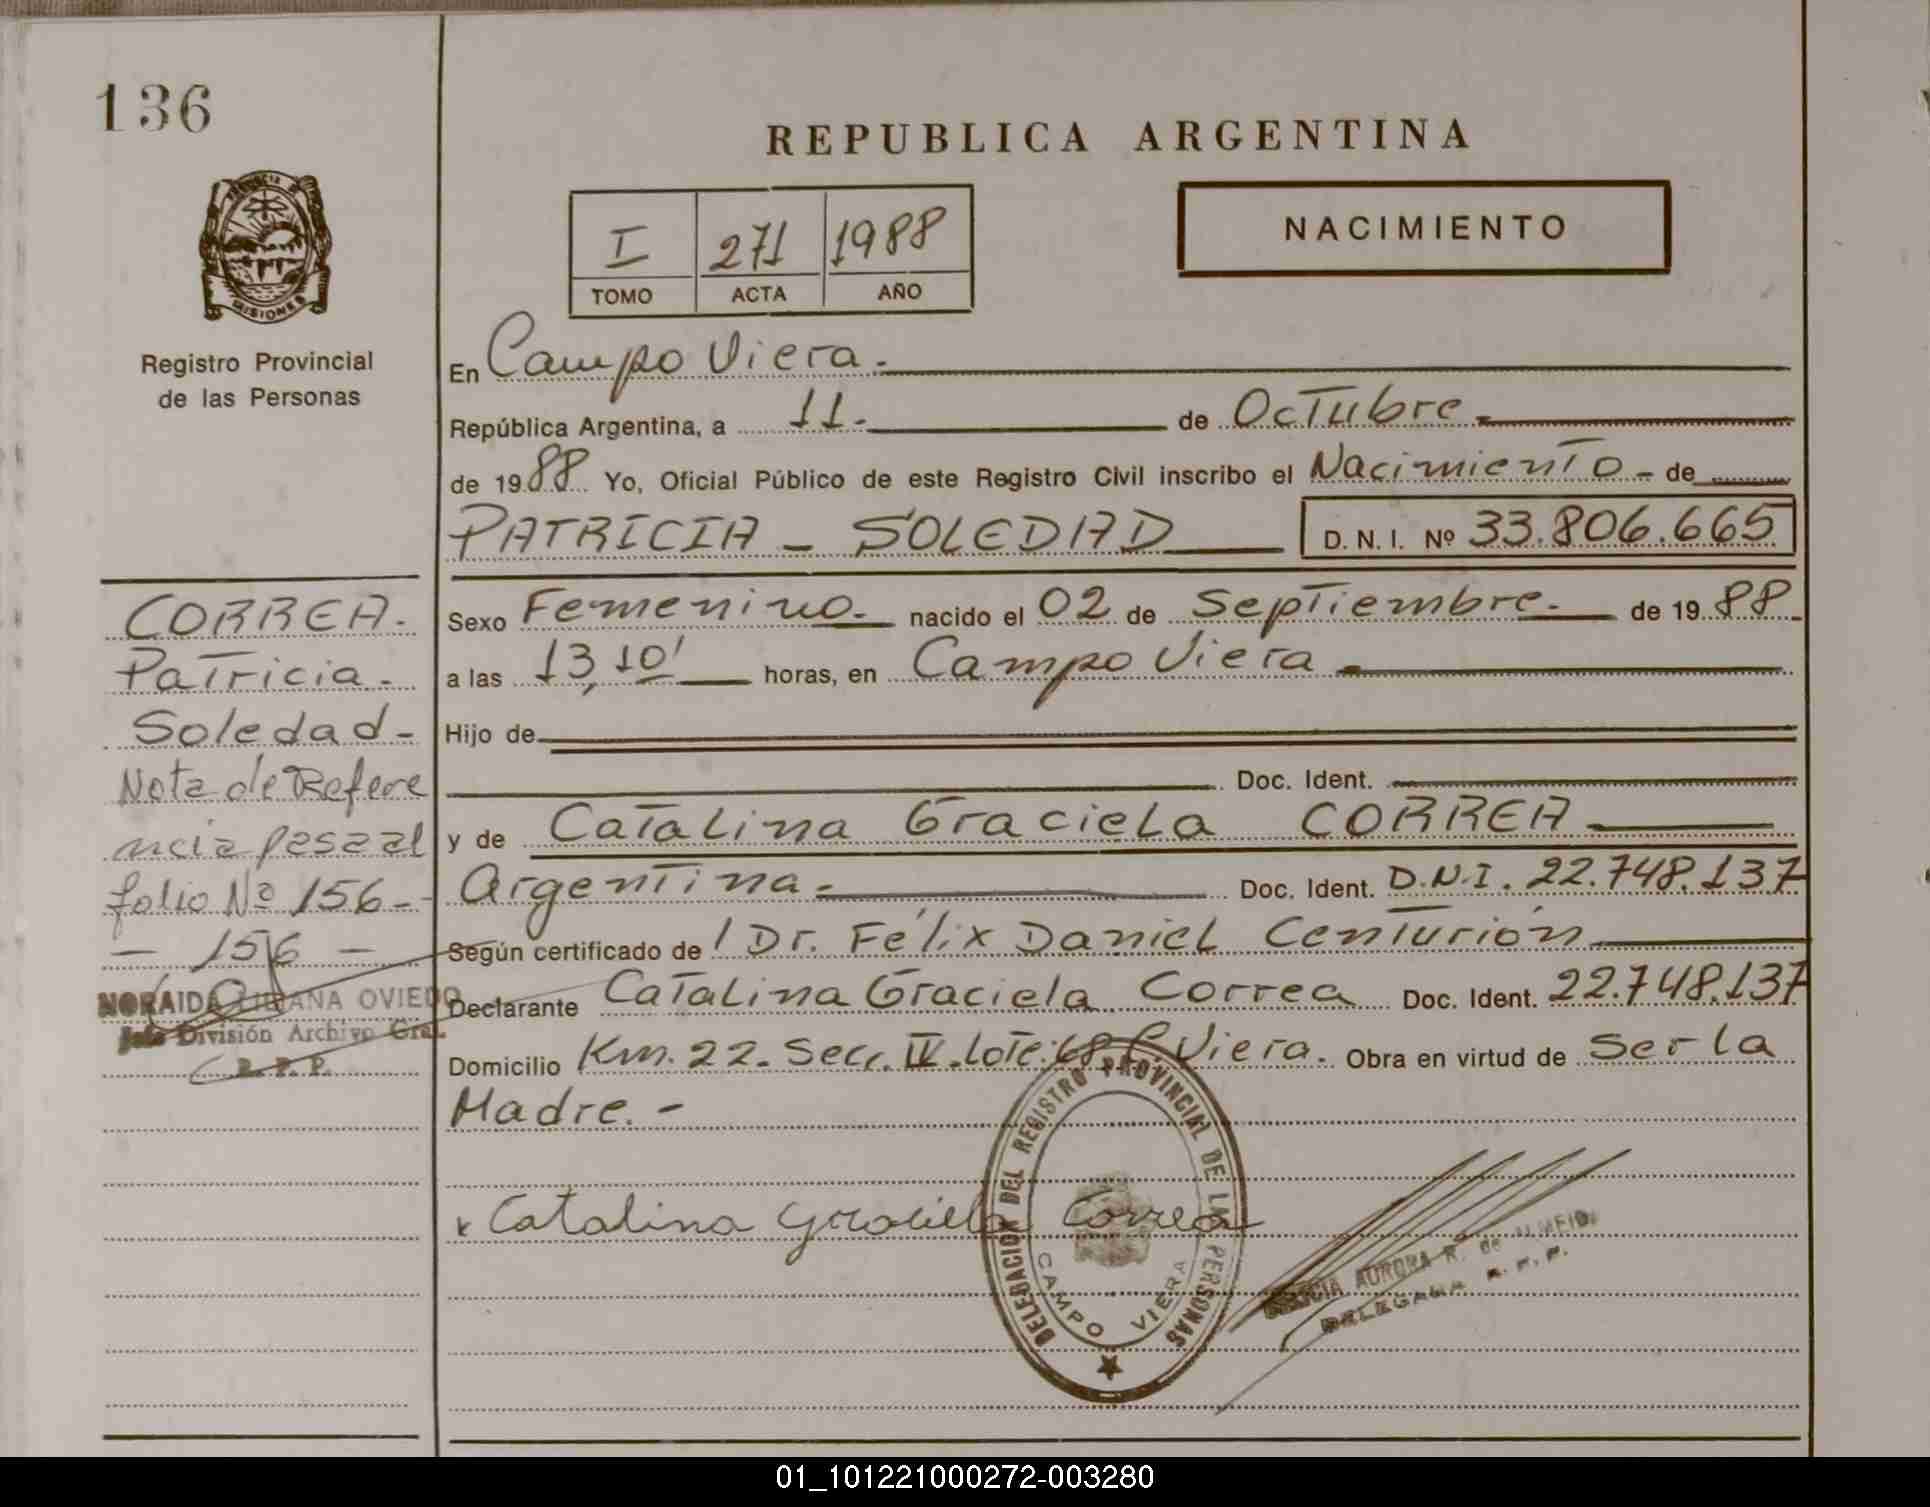 136
REPUBLICA ARGENTINA
PROVINCIA DE
MISIONES
Registro Provincial
de las Personas
I 271 1988
TOMO ACTA AÑO
NACIMIENTO
En Campo Viera.-
República Argentina, a 11.- de Octubre.-
de 1988 Yo, Oficial Público de este Registro Civil inscribo el Nacimiento - de
PATRICIA - SOLEDAD D. N. I. Nº 33.806.665
Sexo Femenino.- nacido el 02 de Septiembre.- de 1988
a las 13,10' horas, en Campo Viera.-
Hijo de
Doc. Ident.
y de Catalina Graciela CORREA
Argentina.- Doc. Ident. D.N.I. 22.748.137
Según certificado de / Dr. Félix Daniel Centurión
Declarante Catalina Graciela Correa Doc. Ident. 22.748.137
Domicilio Km. 22. Secc. IV. Lote: Viera. Obra en virtud de Ser la
Madre.-
Catalina Graciela Correa
DELEGACION DEL REGISTRO PROVINCIAL DE LAS PERSONAS
CAMPO VIERA
AURORA R. de
DELEGADA R. P. P.
CORREA.-
Patricia -
Soledad -
Nota de Refere
ncia pasa al
folio Nº 156 -
- 156 -
NORAIDA LILIANA OVIEDO
Jefe División Archivo Gral.
R. P. P.
01_101221000272-003280